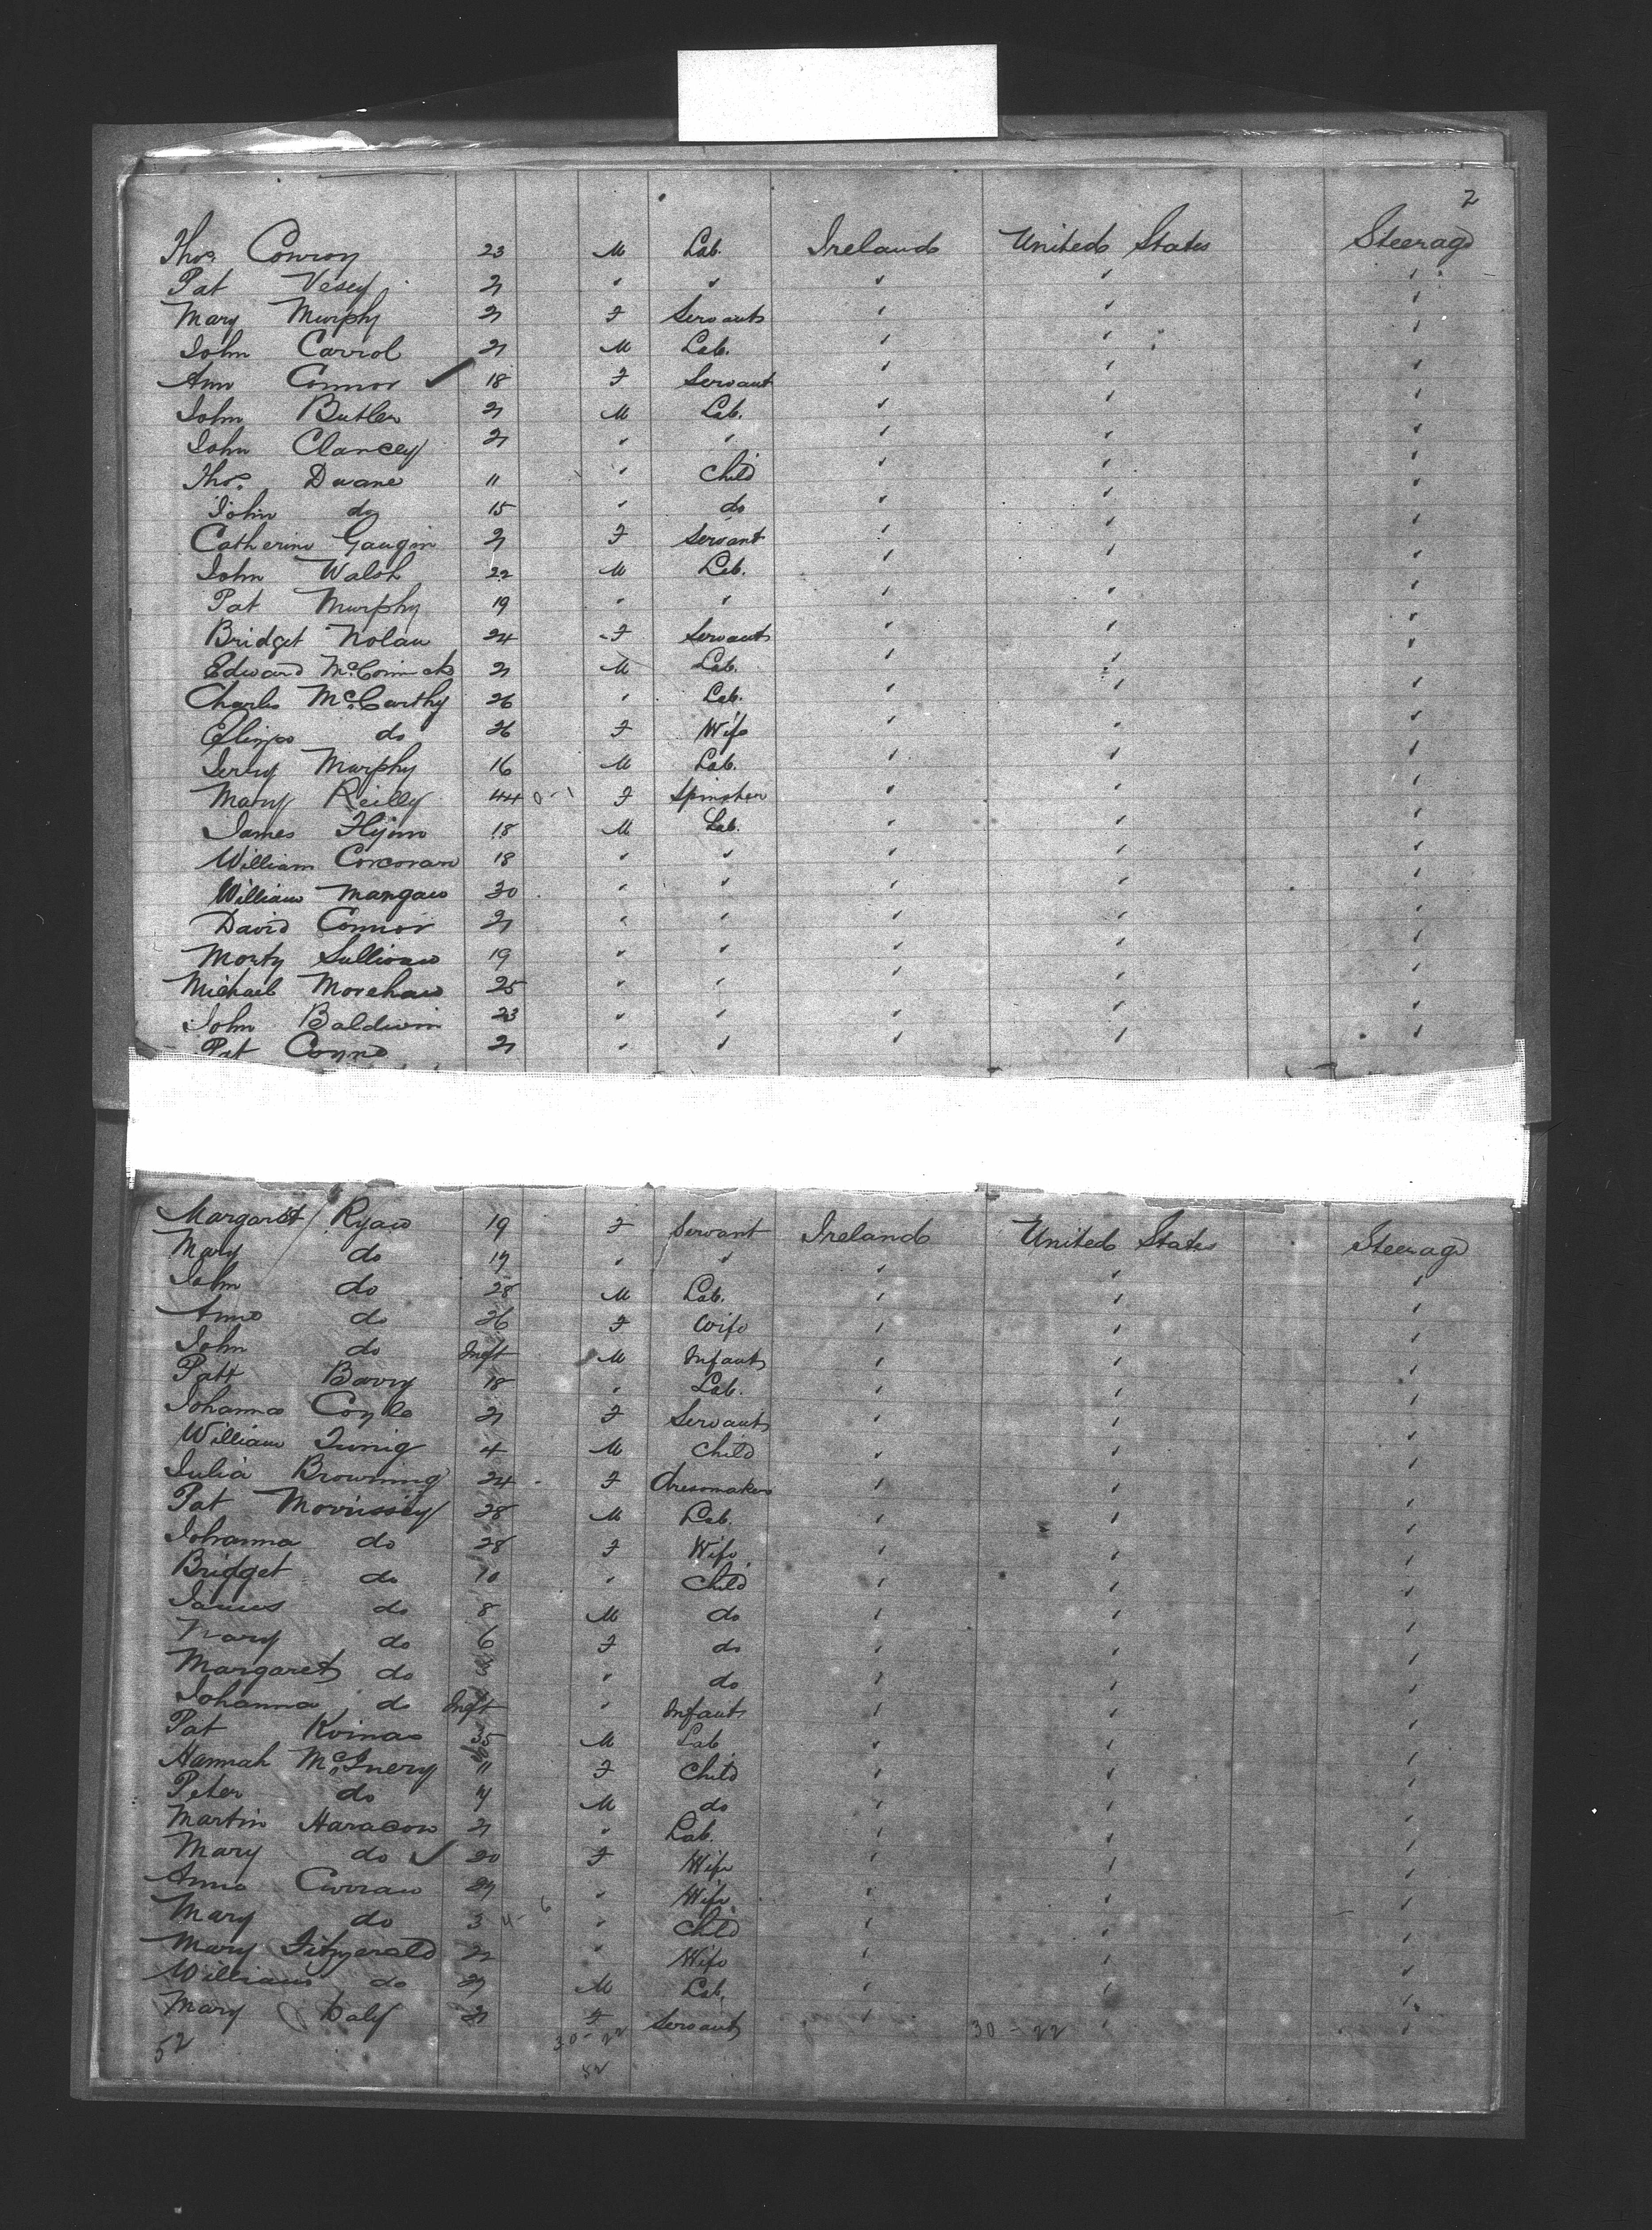 2
Thos. Conroy 23 M Lab. Ireland United States Steerage
Pat Vesey 21 " " " " "
Mary Murphy 21 F Servant " " "
John Carrol 21 M Lab. " " "
Ann Connor ✓ 18 F Servant " " "
John Butler 21 M Lab. " " "
John Clancey 21 " " " " "
Thos. Duane 11 " Child " " "
John do 15 " do " " "
Catherine Gaugin 21 F Servant " " "
John Walsh 22 M Lab. " " "
Pat Murphy 19 " " " " "
Bridget Nolan 24 F Servant " " "
Edward McCormick 21 M Lab. " " "
Charles McCarthy 26 " Lab. " " "
do 26 F Wife " " "
Jerry Murphy 16 M Lab. " " "
Mary Reilly 44 0-1 F Spinster " " "
James Flynn 18 M Lab. " " "
William Corcoran 18 " " " " "
William Mangan 30 " " " " "
David Connor 21 " " " " "
Morty Sullivan 19 " " " " "
Michael Morehan 25 " " " " "
John Baldwin 23 " " " " "
Pat 21 " " " " "
Margaret Ryan 19 F Servant Ireland United States Steerage
Mary do 17 " " " " "
John do 28 M Lab. " " "
Anne do 26 F Wife " " "
John do Inft M Infant " " "
Patt Barry 18 " Lab. " " "
Johanna Coyle 21 F Servant " " "
William 4 M Child " " "
Julia Browning 24 F dressmaker " " "
Pat Morrissey 28 M Lab. " " "
Johanna do 28 F Wife " " "
Bridget do 10 " Child " " "
James do 8 M do " " "
Mary do 6 F do " " "
Margaret do " do " " "
Johanna do Inft " Infant " " "
Pat 35 M Lab " " "
Hannah McInery 11 F Child " " "
Peter do M do " " "
Martin 21 " Lab. " " "
Mary do ✓ 20 F Wife " " "
Anne Curran " Wife " " "
Mary do 3 " Child " " "
Mary Fitzgerald 22 " Wife " " "
William do M Lab. " " "
Mary Daly 21 F Servant " " "
52 30-22 30-22
52